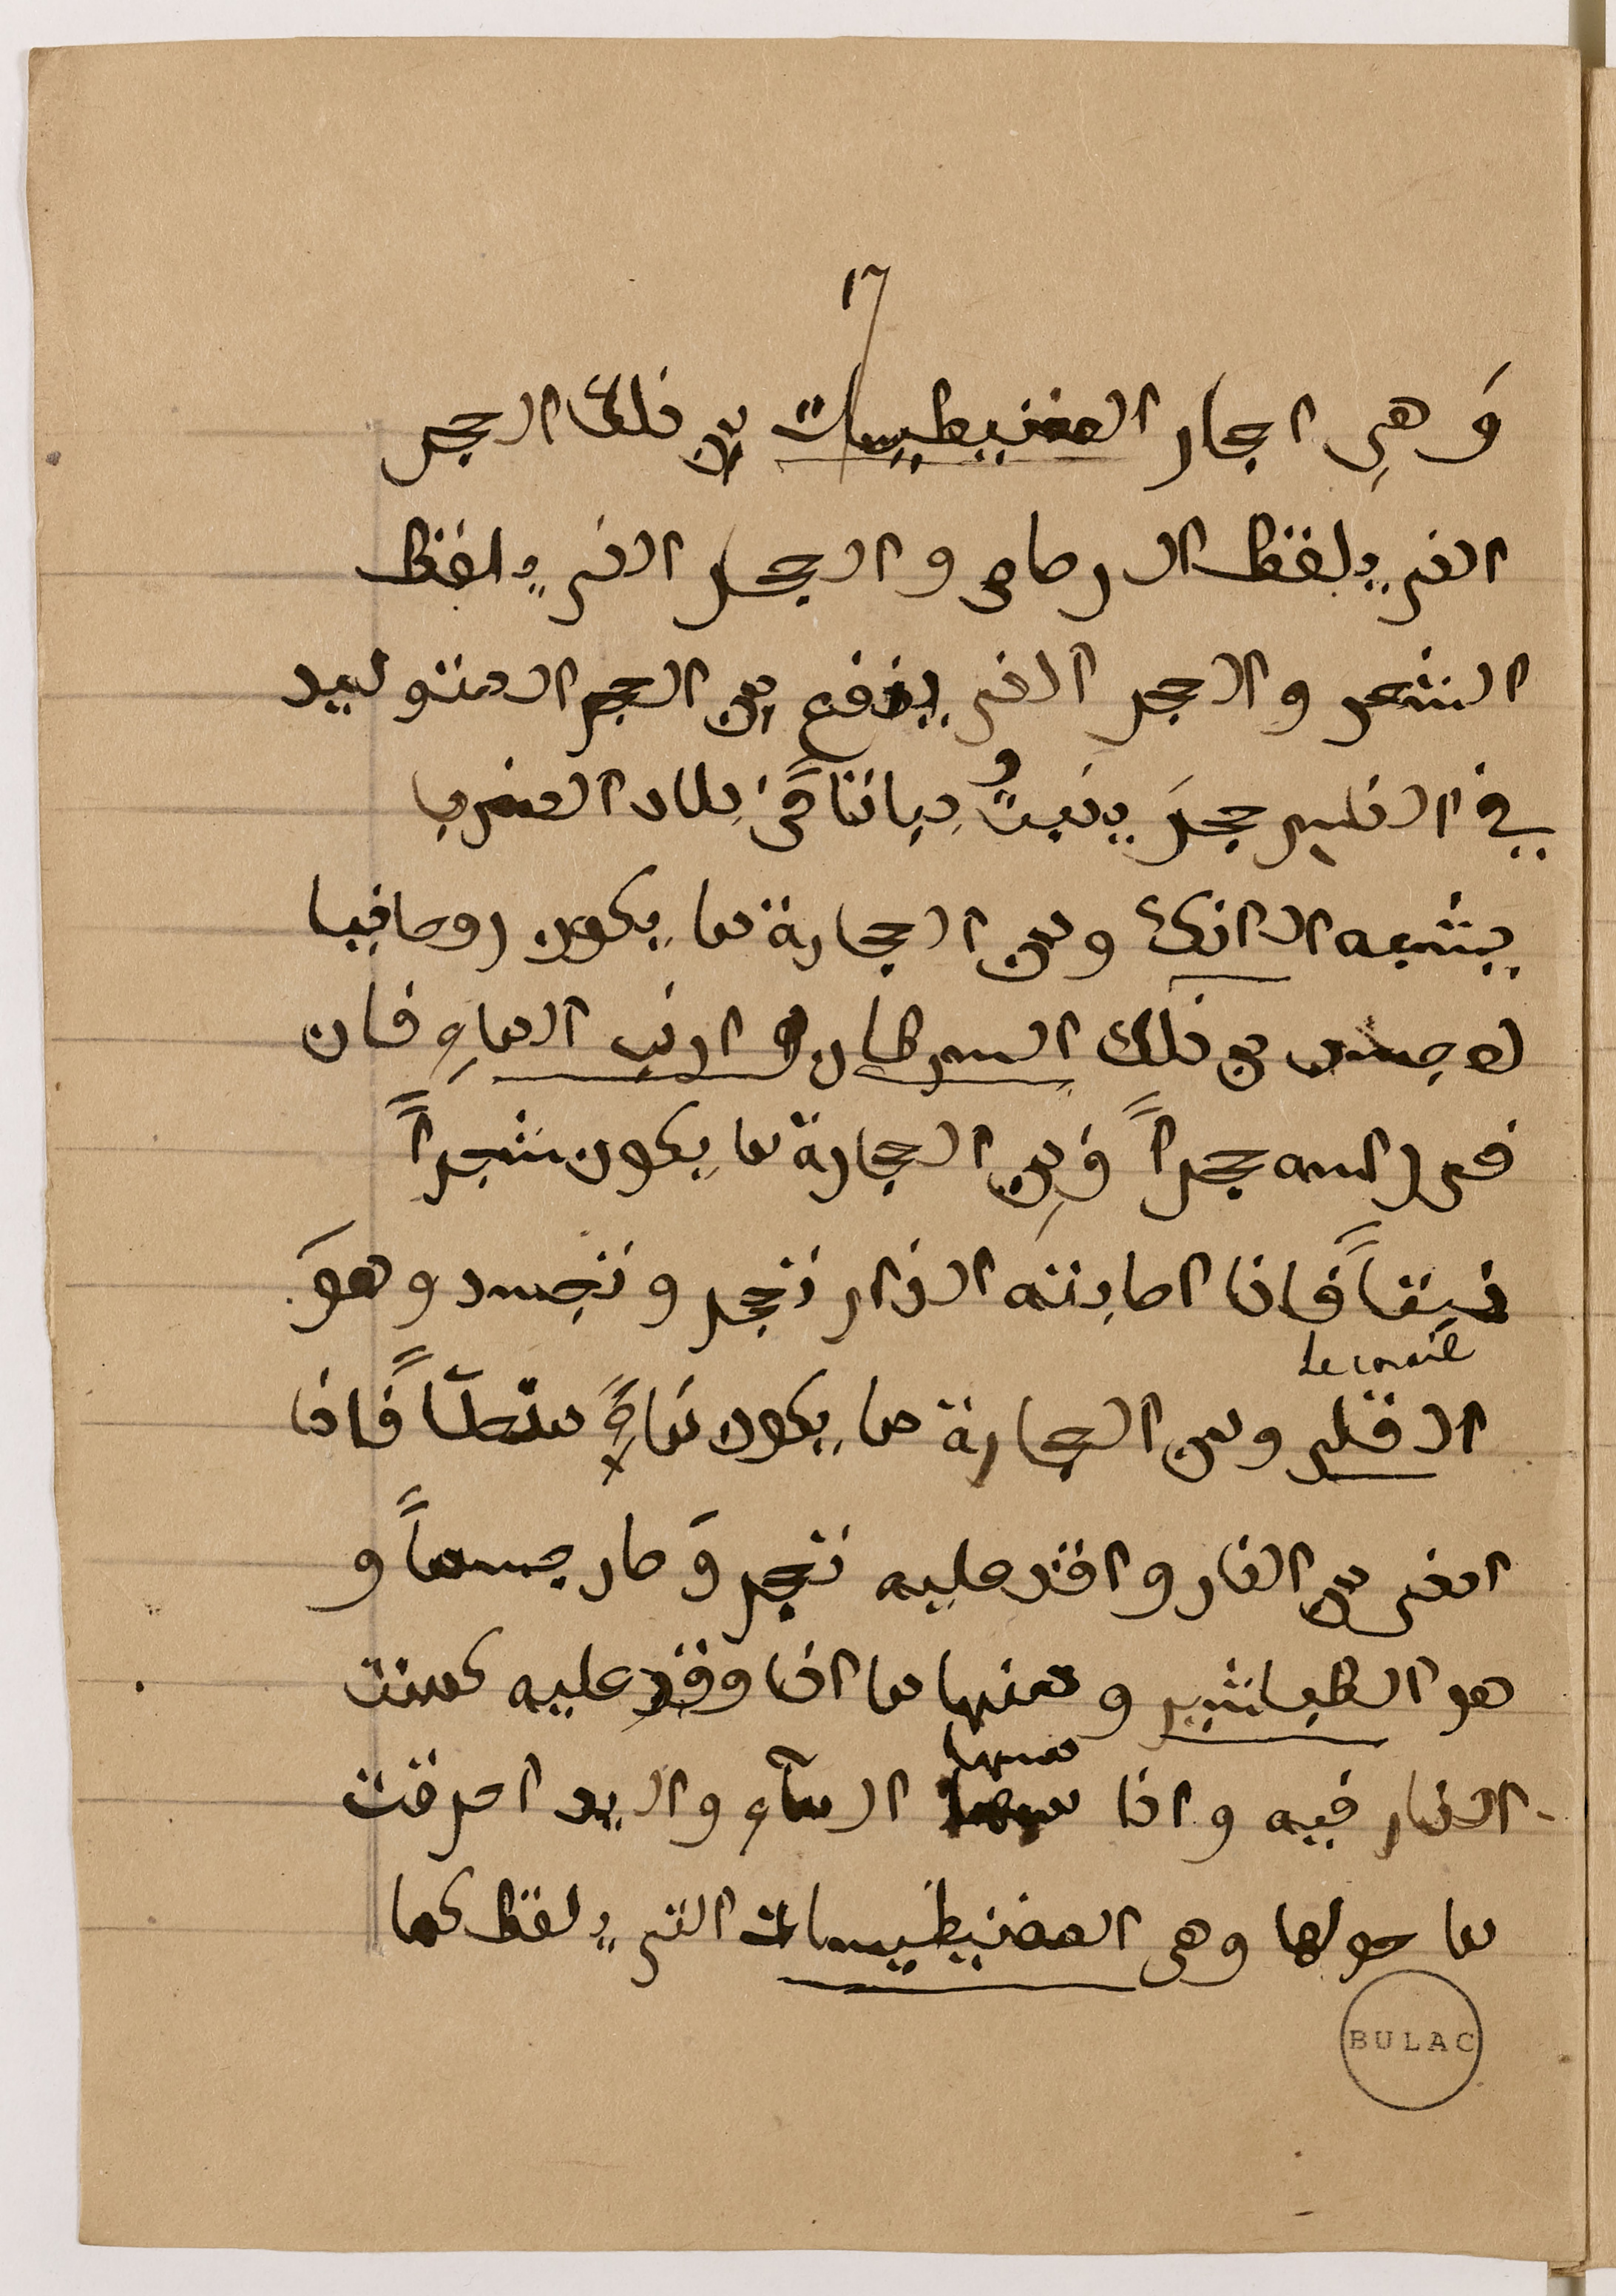 ١٦
وَهِى احجار المغنيطيسات من ذلك الحجر
الذى يلفظ الرصاص والحجر الذى يلفظ
الشعر والحجر الذى ينفع من الحجر المتوليد
في الاقليم حجرَ ينبتُ نباتاً فى بلاد المغرب
يشبه الانك ومن الحجارة ما يكون روحانيا
لا جسد من ذلك السرطان و ارنب الماءِ فان
فى راسه حجراً وَمِن الحجارة ما يكون شجراً
نبتاً فاذا اصابته النار تحجر وتجسد وهوَ
Le corail
القلى ومن الحجارة ما يكون ماءً فاذا
ادنى من النار واقد عليه تحجر وَصار جسماً و
هو الطباشير ومنها ما اذا وقد عليه كمنت
النار فيه واذا مسها
مسها
الماء واليد احرقت
ما حولها وهى المغنيطيسات التى يلفظ كما
BULAC